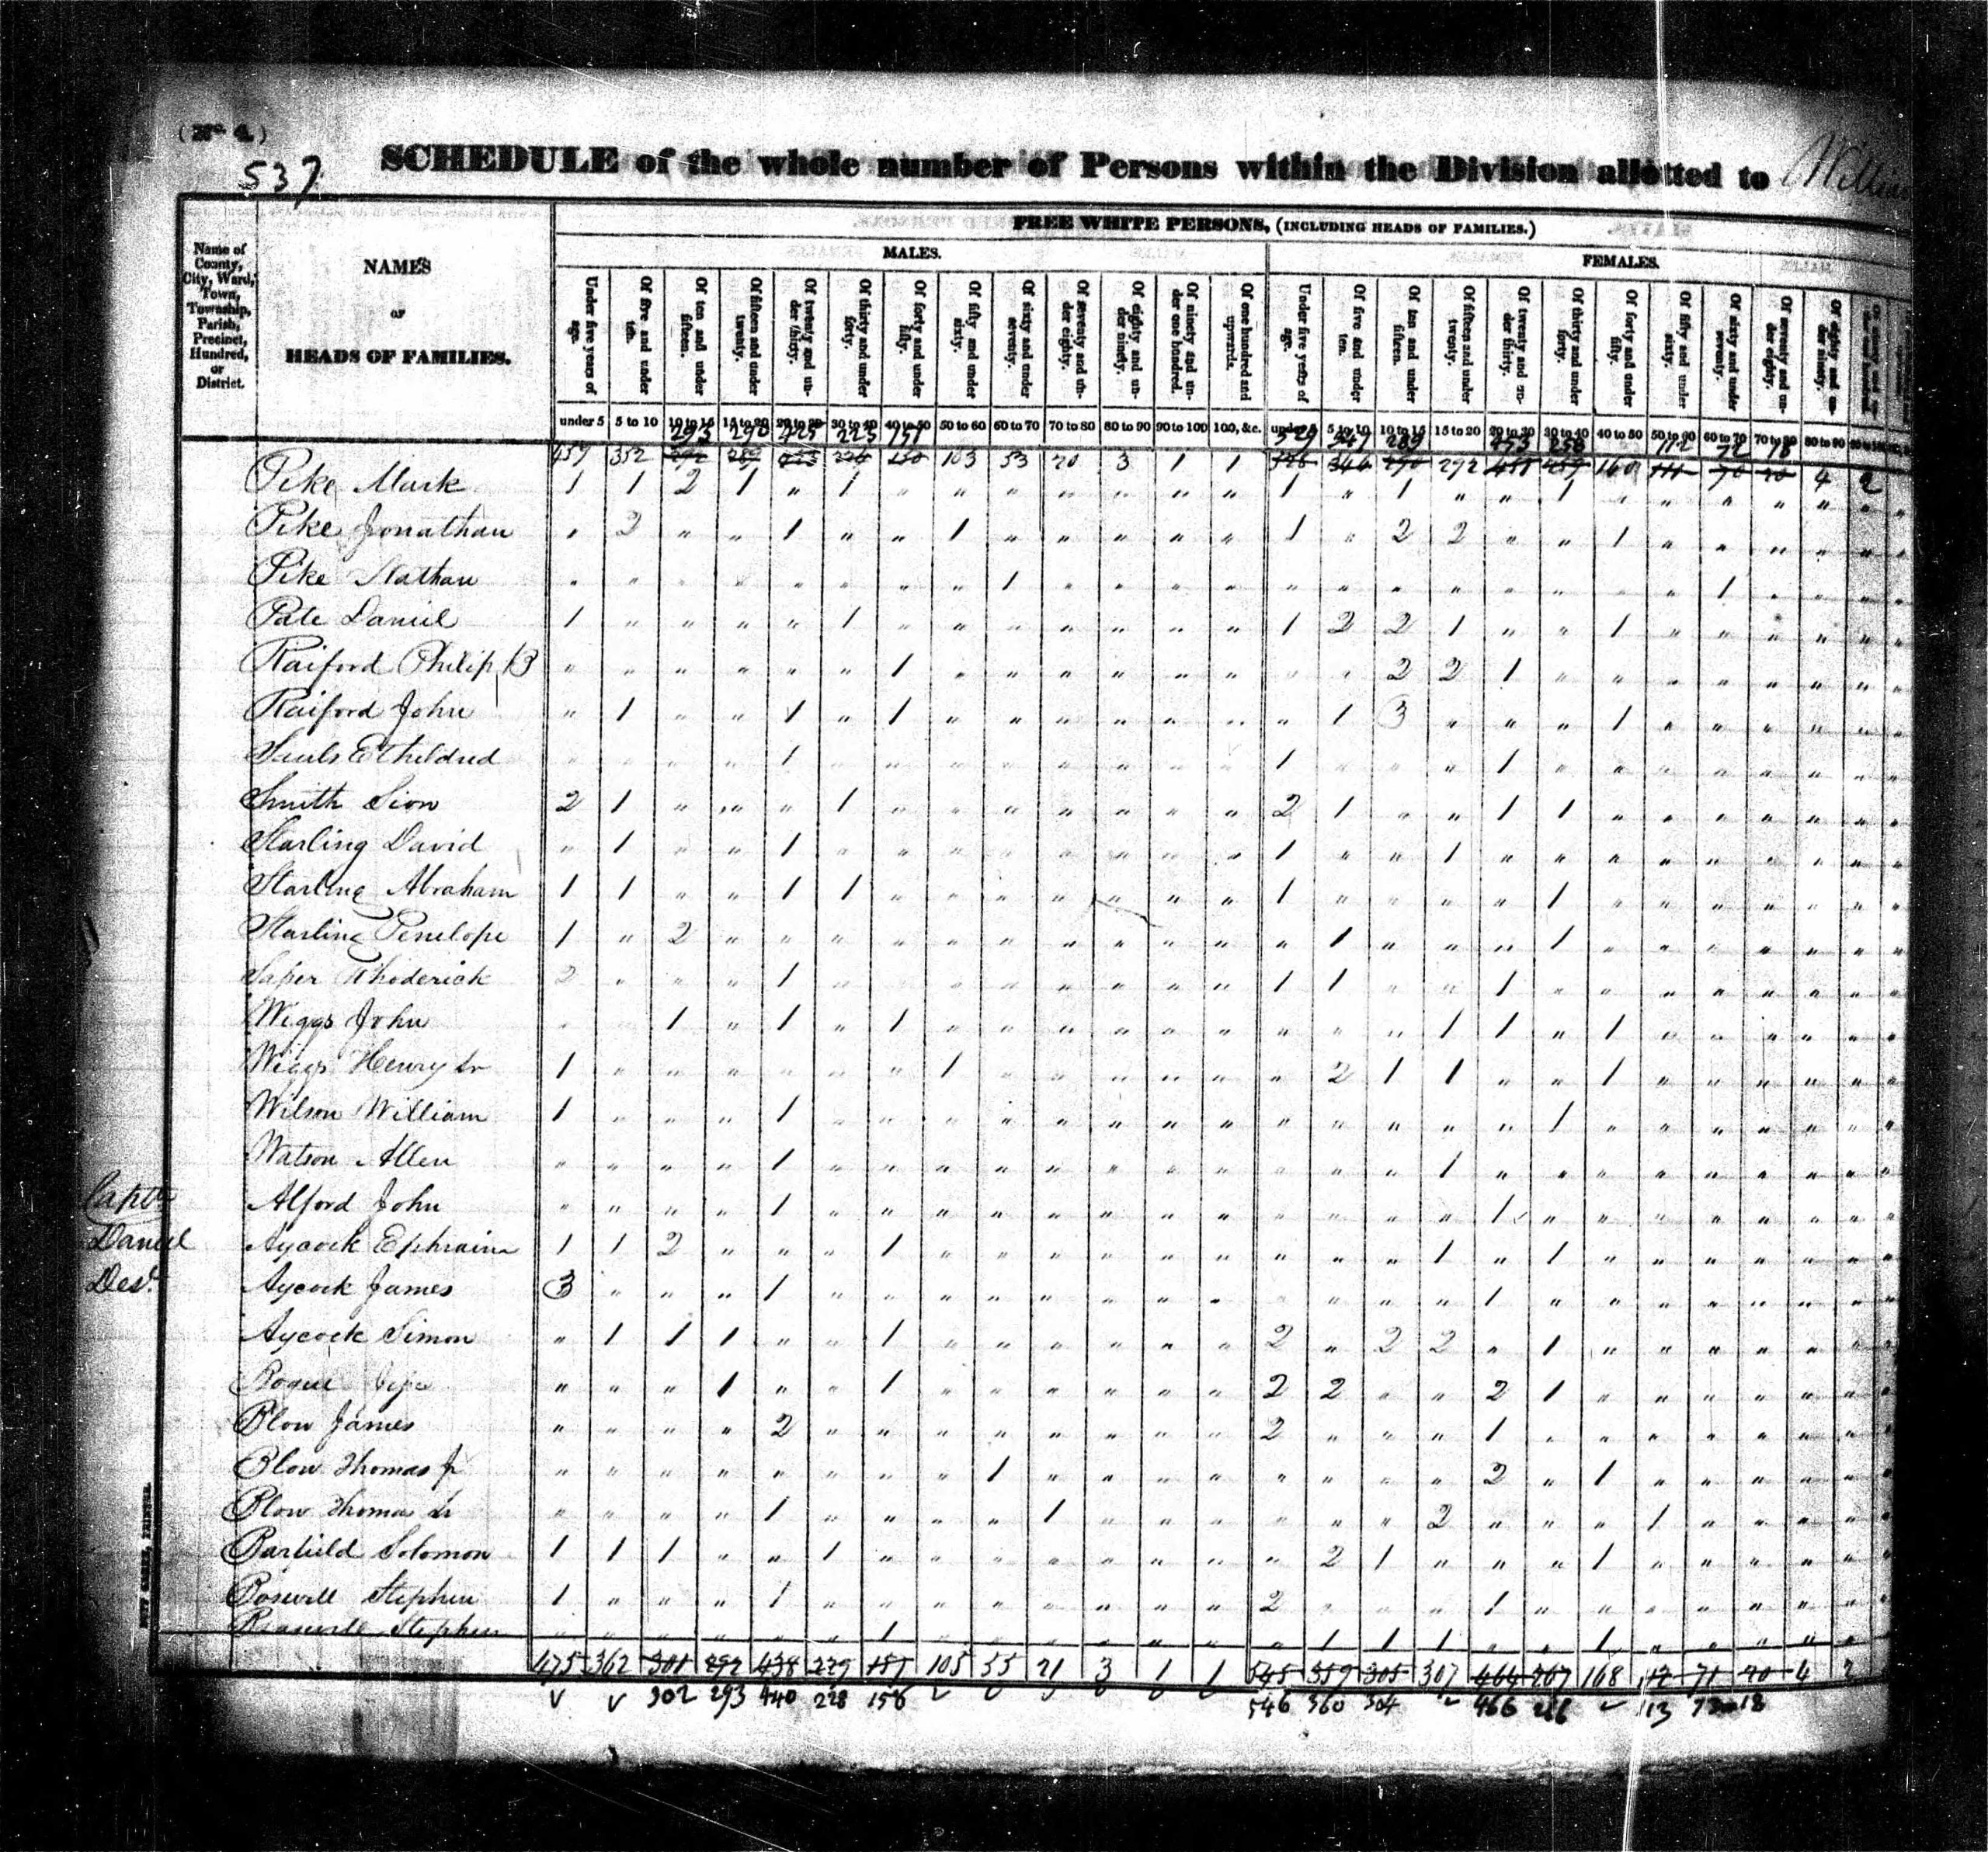 (No. 4.)
537
SCHEDULE of the whole number of Persons within the Division allotted to
FREE WHITE PERSONS, (INCLUDING HEADS OF FAMILIES.)
MALES.
FEMALES.
Name of County, City, Ward, Town, Township, Parish, Precinct, Hundred, or District.
NAMES
OF
HEADS OF FAMILIES.
Under five years of age. Of five and under ten. Of ten and under fifteen. Of fifteen and under twenty. Of twenty and under thirty. Of thirty and under forty. Of forty and under fifty. Of fifty and under sixty. Of sixty and under seventy. Of seventy and under eighty. Of eighty and under ninety. Of ninety and under one hundred. Of one hundred and upwards. Under five years of age. Of five and under ten. Of ten and under fifteen. Of fifteen and under twenty. Of twenty and under thirty. Of thirty and under forty. Of forty and under fifty. Of fifty and under sixty. Of sixty and under seventy. Of seventy and under eighty. Of eighty and under ninety.
under 5 5 to 10 10 to 15 15 to 20 20 to 30 30 to 40 40 to 50 50 to 60 60 to 70 70 to 80 80 to 90 90 to 100 100, &c. under 5 5 to 10 10 to 15 15 to 20 20 to 30 30 to 40 40 to 50 50 to 60 60 to 70 70 to 80 80 to 90
457 352 103 53 20 3 1 1 292 160 4 2
Pike Mark 1 1 2 1 " 1 " " " " " " " 1 " 1 " " 1 " " " " " " "
Pike Jonathan " 2 " " 1 " " 1 " " " " " 1 " 2 2 " " 1 " " " " " "
Pike Nathan " " " " " " " " 1 " " " " " " " " " " " " 1 " " " "
Pate Daniel 1 " " " " 1 " " " " " " " 1 2 2 1 " " 1 " " " " " "
Raiford Philip B " " " " " " 1 " " " " " " " " 2 2 1 " " " " " " " "
Raiford John " 1 " " 1 " 1 " " " " " " " 1 3 " " " 1 " " " " " "
Sauls Etheldred " " " " 1 " " " " " " " " 1 " " " 1 " " " " " " " "
Smith Sion 2 1 " " " 1 " " " " " " " 2 1 " " 1 1 " " " " " " "
Starling David " 1 " " 1 " " " " " " " " 1 " " 1 " " " " " " " " "
Starling Abraham 1 1 " " 1 1 " " " " " " " 1 " " " " 1 " " " " " " "
Starling Penelope 1 " 2 " " " " " " " " " " " 1 " " " 1 " " " " " " "
Saper Rhoderick 2 " " " 1 " " " " " " " " 1 1 " " 1 " " " " " " " "
Wiggs John " " 1 " 1 " 1 " " " " " " " " " 1 1 " 1 " " " " " "
Wiggs Henry Sr 1 " " " " " " 1 " " " " " " 2 1 1 " " 1 " " " " " "
Wilson William 1 " " " 1 " " " " " " " " " " " " " 1 " " " " " " "
Watson Allen " " " " 1 " " " " " " " " " " " 1 " " " " " " " " "
Capts Alford John " " " " 1 " " " " " " " " " " " " 1 " " " " " " " "
Daniel Aycock Ephraim 1 1 2 " " " 1 " " " " " " " " " 1 " 1 " " " " " " "
Dest. Aycock James 3 " " " 1 " " " " " " " " " " " " 1 " " " " " " " "
Aycock Simon " 1 1 1 " " 1 " " " " " " 2 " 2 2 " 1 " " " " " " "
Bogue " " " 1 " " 1 " " " " " " 2 2 " " 2 1 " " " " " " "
Blow James " " " " 2 " " " " " " " " 2 " " " 1 " " " " " " " "
Blow Thomas Jr " " " " " " " " 1 " " " " " " " " 2 " 1 " " " " " "
Blow Thomas Sr " " " " 1 " " " " 1 " " " " " " 2 " " " 1 " " " " "
Barfield Solomon 1 1 1 " " 1 " " " " " " " " 2 1 " " " 1 " " " " " "
Boswell Stephen 1 " " " 1 " " " " " " " " 2 " " " 1 " " " " " " " "
Stephen " " " " " " 1 " " " " " " " 1 1 1 " " 1 " " " " " "
475 362 301 292 438 229 157 105 55 21 3 1 1 545 359 305 307 464 267 168 12 71 20 4 2
302 293 440 228 156 546 360 304 466 266 13 73 18